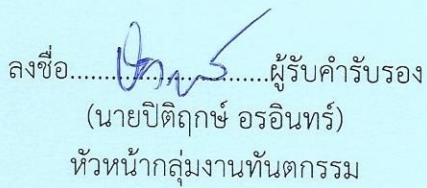 ลงชื่อ.......................ผู้รับคำรับรอง
(นายปิติฤกษ์ อรอินทร์)
หัวหน้ากลุ่มงานทันตกรรม